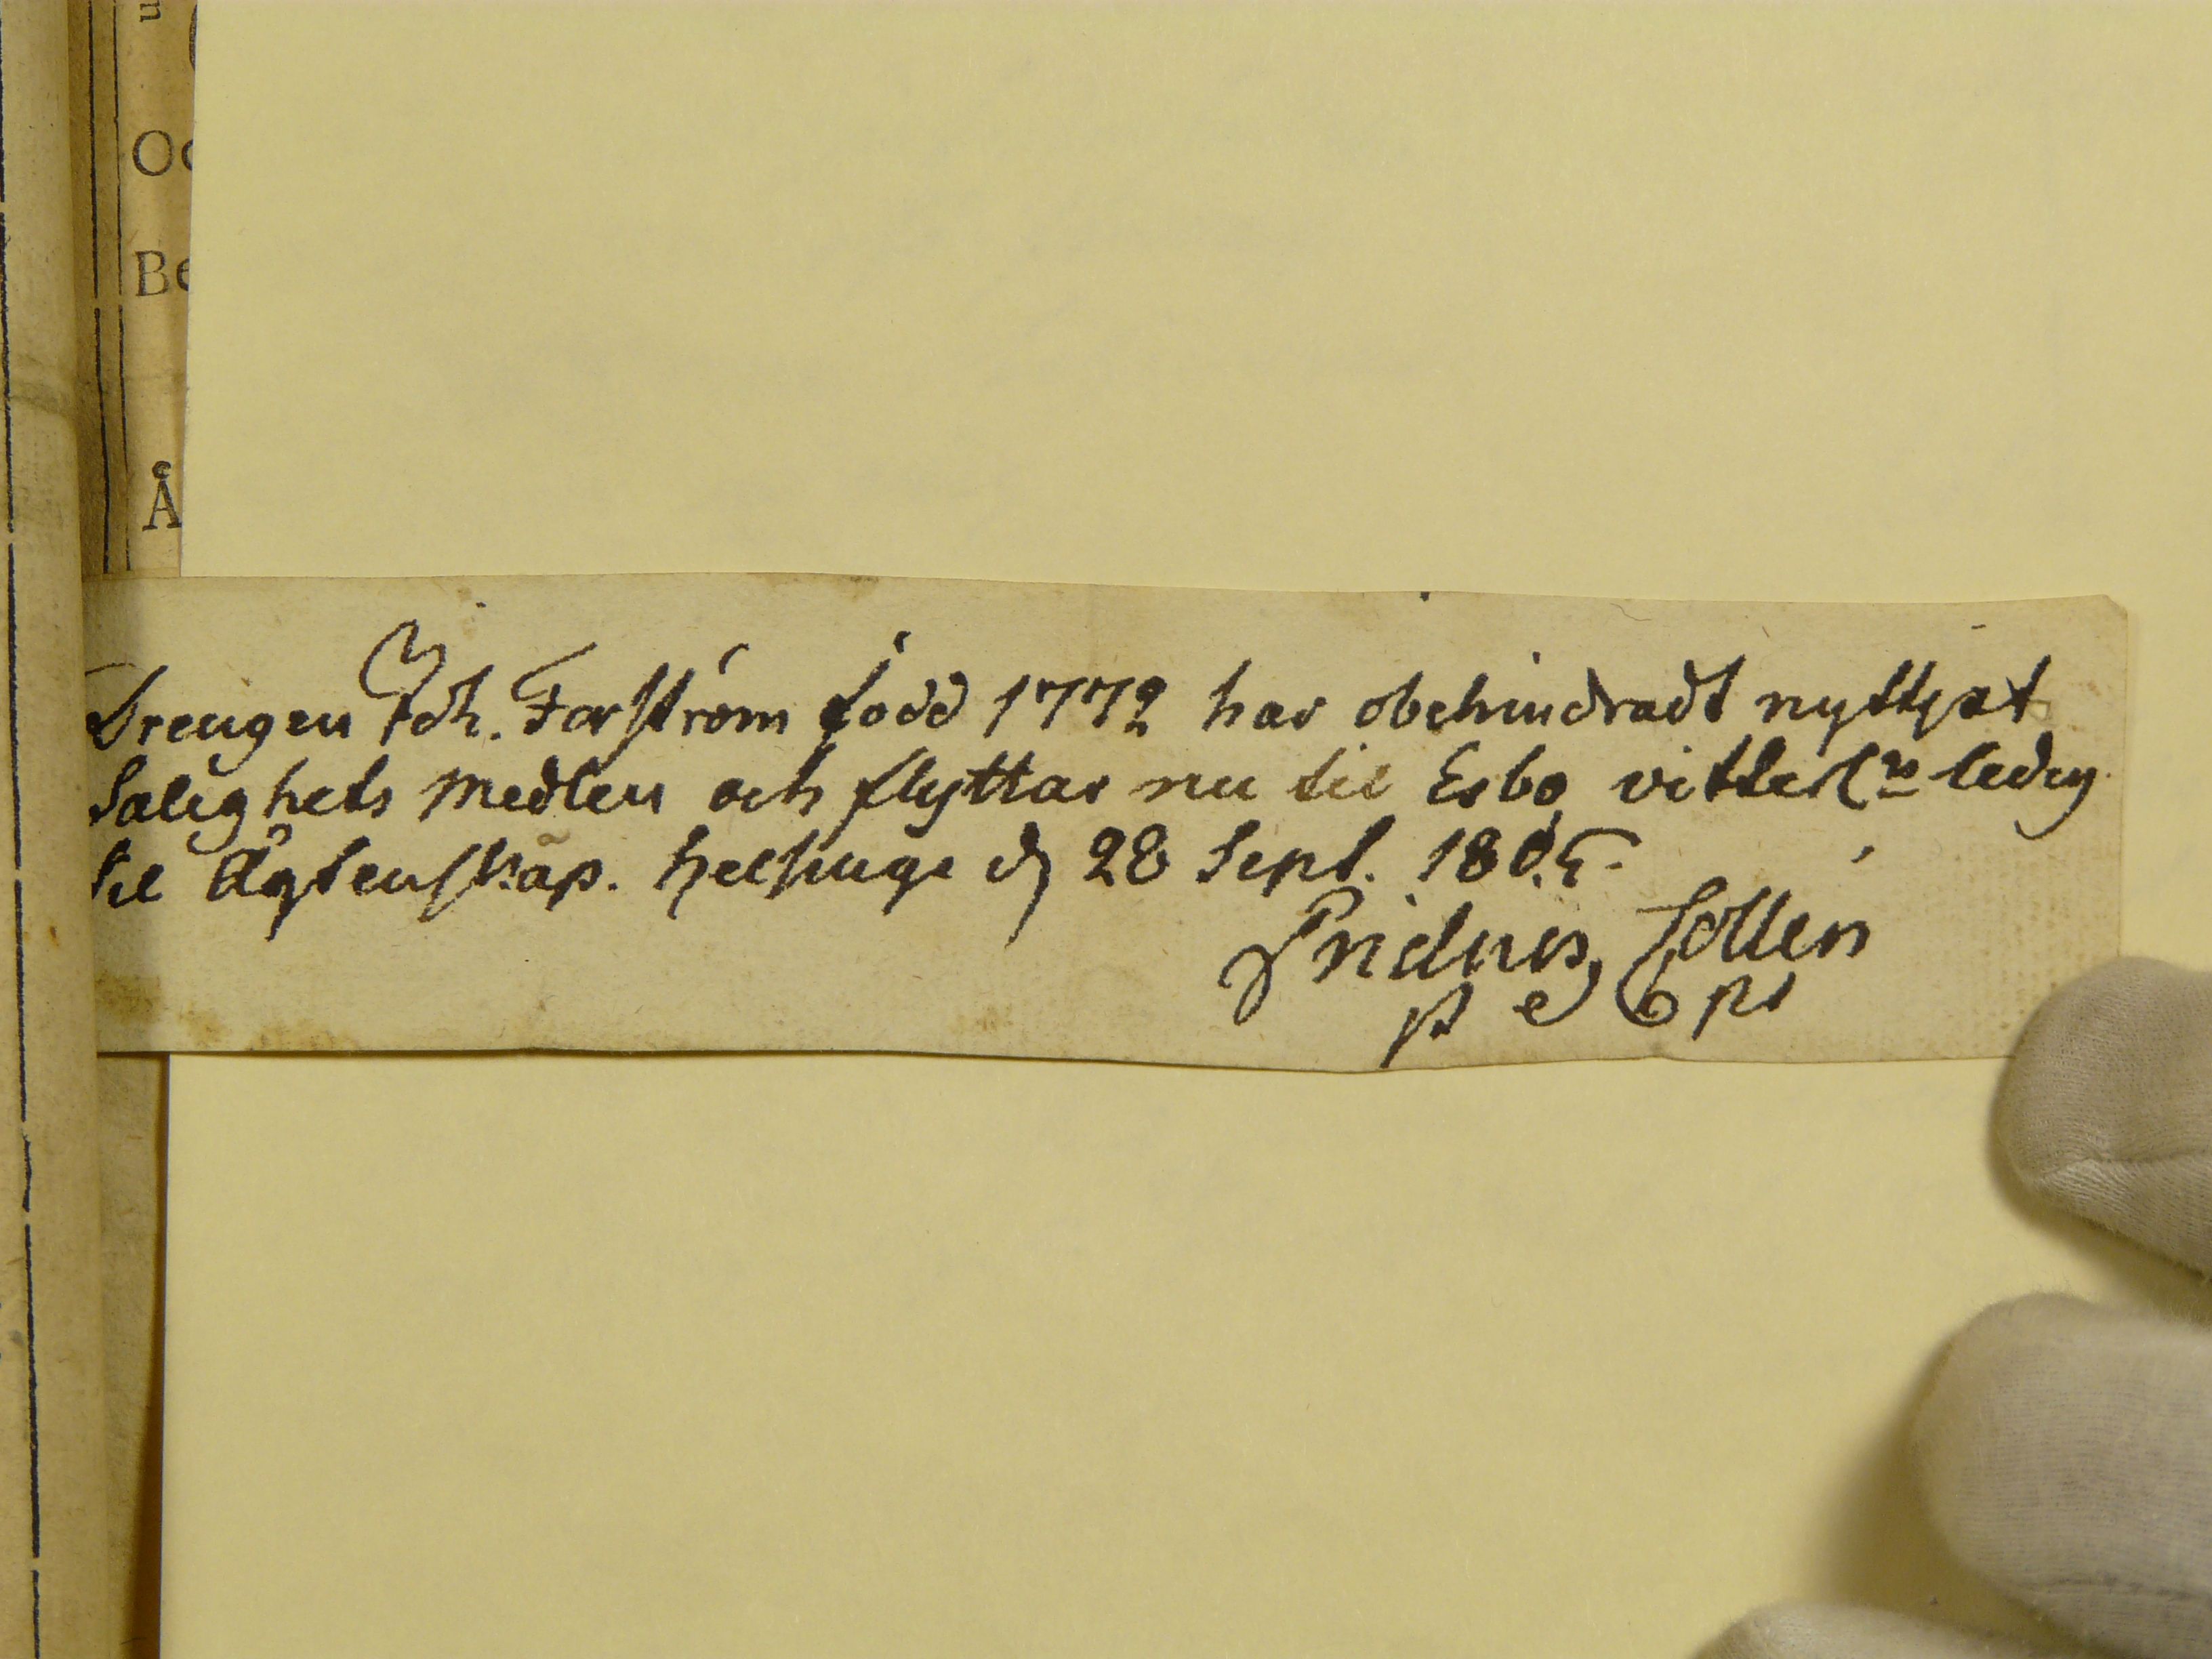 n
Oc
Be
Å
Drengen Joh. Forström född 1772 har obehindradt nyttjat
Salighets medlen och flyttar nu til Esbo ledig
til Ägtenskap. Helsinge d 28 Sept. 1805.
Collen